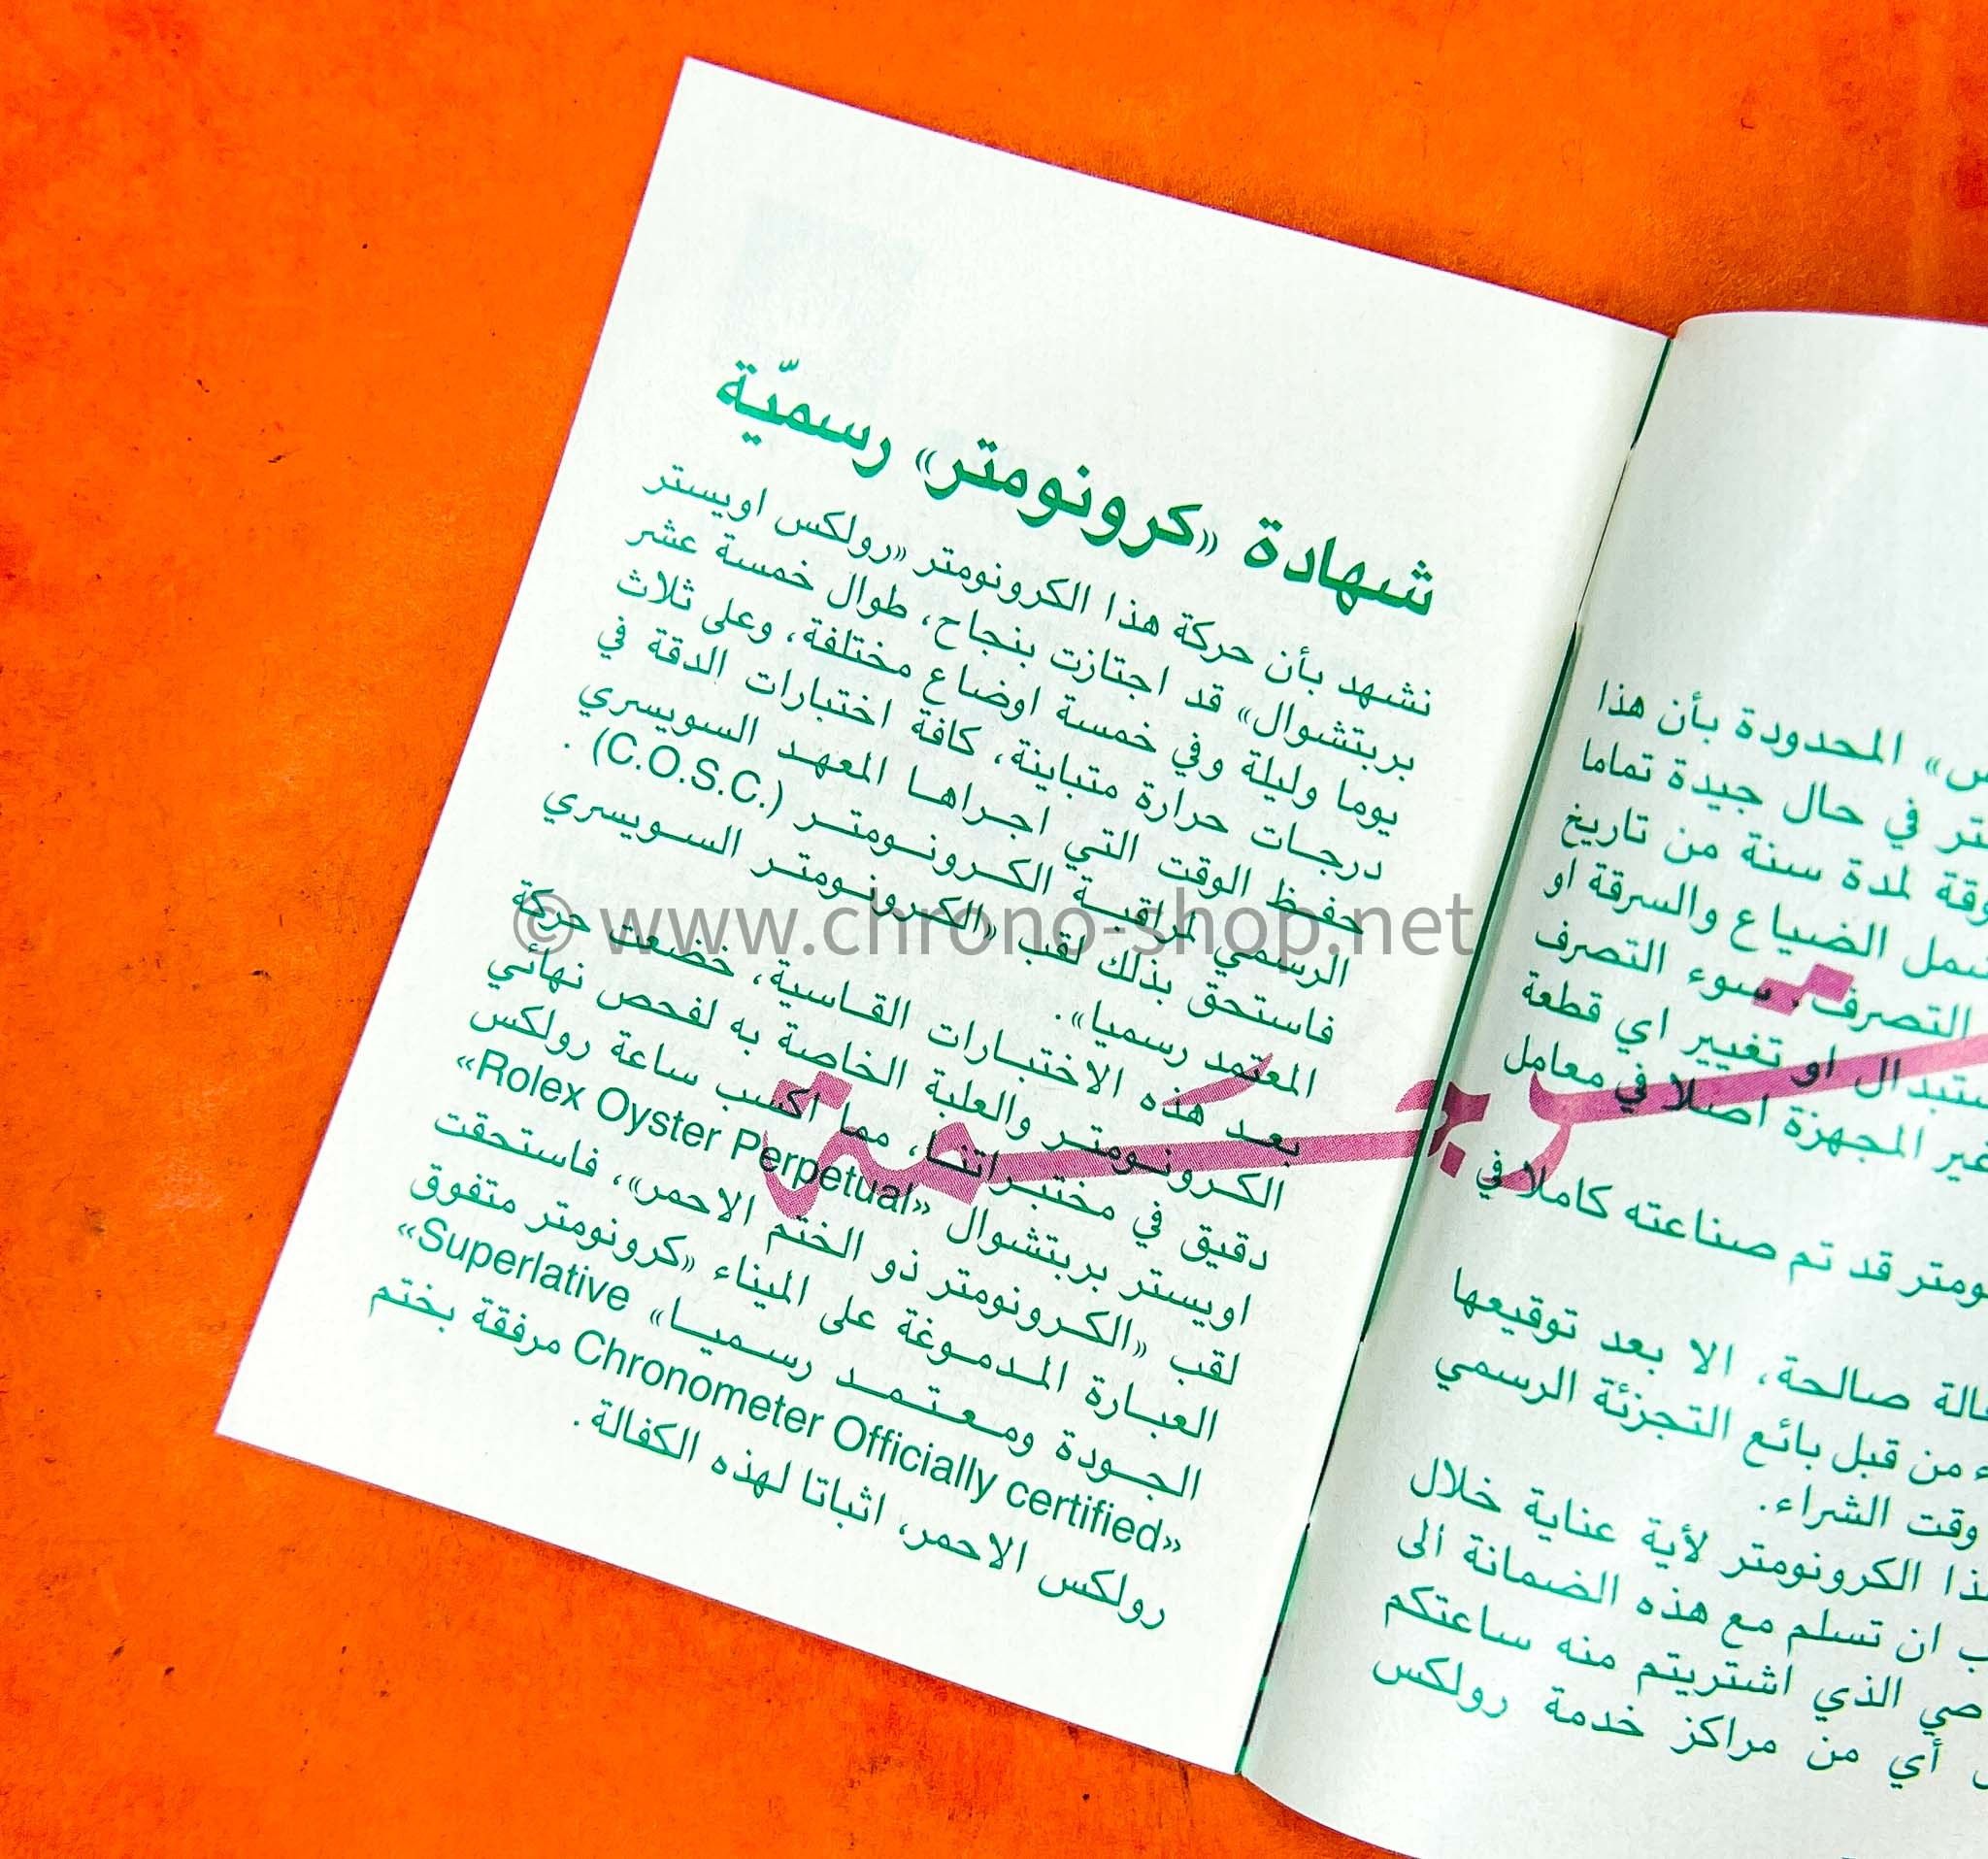 شهادة «كرونومتر» رسميّة
نشهد بأن حركة هذا الكرونومتر «رولكس اويستر
بربتشوال» قد اجتازت بنجاح، طوال خمسة عشر
يوما وليلة وفي خمسة اوضاع مختلفة، وعلى ثلاث
درجات حرارة متباينة، كافة اختبارات الدقة في
حفظ الوقت التي اجراها المعهد السويسري
الرسمي لمراقبة الكرونومتر (C.O.S.C.) .
فاستحق بذلك لقب «الكرونومتر السويسري
المعتمد رسميا».
بعد هذه الاختبارات القاسية، خضعت حركة
الكرونومتر والعلبة الخاصة به لفحص نهائي
دقيق في مختبراتنا، مما اكسب ساعة رولكس
اويستر بربتشوال «Rolex Oyster Perpetual»
لقب «الكرونومتر ذو الختم الاحمر»، فاستحقت
العبارة المدموغة على الميناء «كرونومتر متفوق
الجودة ومعتمد رسميا» «Superlative
Chronometer Officially certified» مرفقة بختم
رولكس الاحمر، اثباتا لهذه الكفالة.
المحدودة بأن هذا
في حال جيدة تماما
لمدة سنة من تاريخ
الضياع والسرقة او
التصرف، سوء التصرف
او تغيير اي قطعة
غير المجهزة اصلا في معامل
قد تم صناعته كاملا في
صالحة، الا بعد توقيعها
من قبل بائع التجزئة الرسمي
وقت الشراء.
الكرونومتر لأية عناية خلال
ان تسلم مع هذه الضمانة الى
الذي اشتريتم منه ساعتكم
أي من مراكز خدمة رولكس
© www.chrono-shop.net